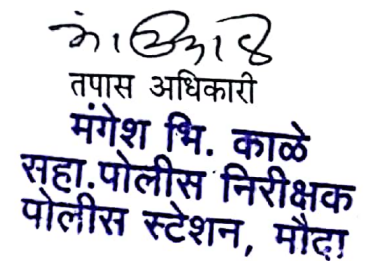 तपास अधिकारी
मंगेश भि. काळे
सहा.पोलीस निरीक्षक
पोलीस स्टेशन, मौदा